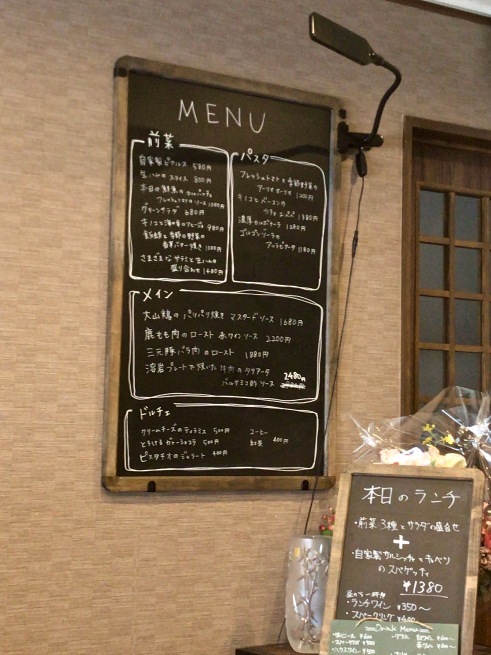 MENU
前菜
自家製ピクルス 580円
生ハムのスライス 800円
本日の鮮魚のカルパッチョ
フレッシュトマトのソース 1000円
グリーンサラダ 680円
キノコと海の幸のアヒージョ 980円
香草バター焼き 1000円
さまざまなサラミと生ハムの
盛り合わせ 1480円
パスタ
フレッシュトマトと季節野菜の
アーリオオーリオ 1200円
キノコとベーコンの
1380円
濃厚カルボナーラ 1280円
ゴルゴンゾーラの
アラビアータ 1180円
メイン
大山鶏のパリパリ焼き マスタードソース 1680円
鹿もも肉のロースト 赤ワインソース 2200円
三元豚バラ肉のロースト 1880円
溶岩プレートで焼いた牛肉のタリアータ 2480円
バルサミコ酢ソース
ドルチェ
クリームチーズのティラミス 500円
とろけるガトーショコラ 500円
ピスタチオのジェラート 400円
コーヒー
紅茶 400円
本日のランチ
・前菜3種とサラダの盛合せ
+
・自家製サルシッチャとキャベツ
のスパゲッティ
¥1380
・ランチワイン ¥350〜
・スパークリング ¥400
Drink Menu